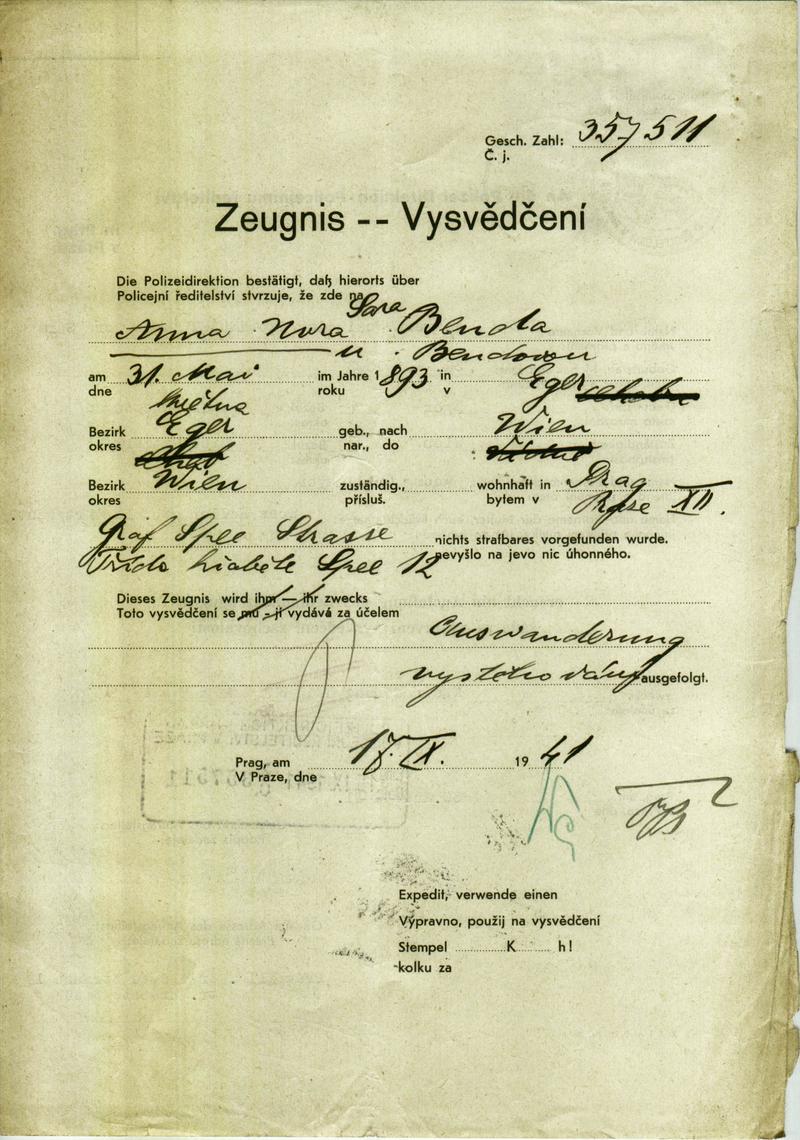 Gesch. Zahl: 357511
Č. j.
Zeugnis -- Vysvědčení
Die Polizeidirektion bestätigt, daß hierorts über
Policejní ředitelství stvrzuje, že zde na
Sara
Anna Nora Benda
u Bendovou
am 31. Mai im Jahre 1893 in Eger
dne května roku v
Bezirk Eger geb., nach Wien
okres nar., do
Bezirk Wien zuständig., wohnhaft in Prag
okres přísluš. bytem v XII.
Graf Spee Strasse nichts strafbares vorgefunden wurde.
Třída hraběte Spee 12 nevyšlo na jevo nic úhonného.
Dieses Zeugnis wird ihm — ihr zwecks
Toto vysvědčení se mu - jí vydává za účelem
Auswanderung
vystěhování ausgefolgt.
Prag, am 17. IX. 1941
V Praze, dne
Expedit, verwende einen
Výpravno, použij na vysvědčení
Stempel K h!
kolku za